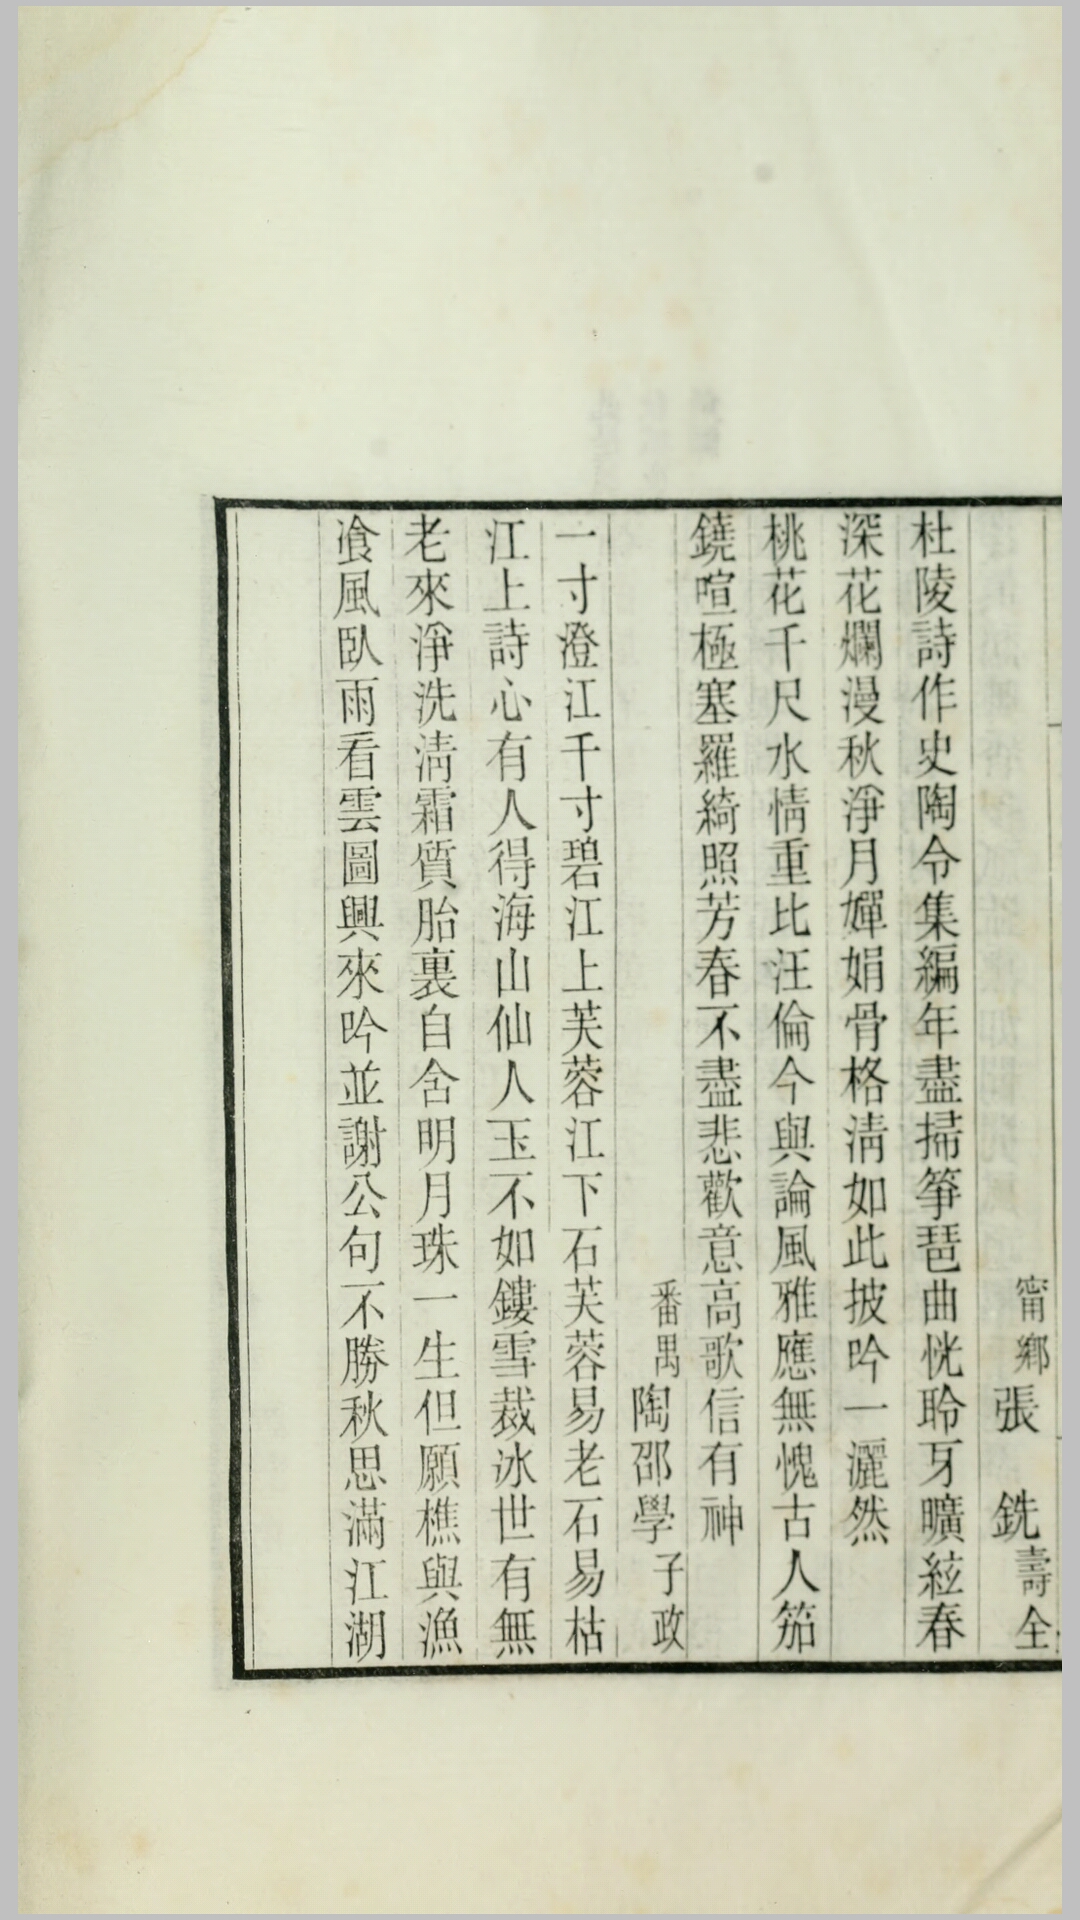 甯鄉張 銑壽全
杜陵詩作史陶令集編年盡掃箏琶曲恍聆牙曠絃春
深花爛漫秋淨月嬋娟骨格淸如此披吟一灑然
桃花千尺水情重比汪倫今與論風雅應無愧古人笳
鐃喧極塞羅綺照芳春不盡悲歡意高歌信有神
番禺陶邵學子政
一寸澄江千寸碧江上芙蓉江下石芙蓉易老石易枯
江上詩心有人得海山仙人玉不如鏤雪裁冰世有無
老來淨洗淸霜質胎裏自含明月珠一生但願樵與漁
飡風臥雨看雲圖興來吟並謝公句不勝秋思滿江湖